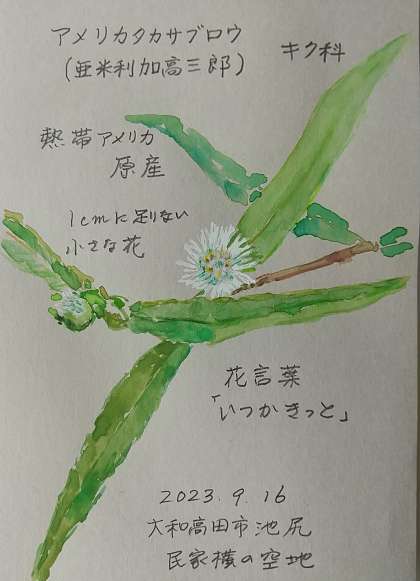 アメリカタカサブロウ
(亜米利加高三郎)
キク科
熱帯アメリカ
原産
1cmに足りない
小さな花
花言葉
「いつかきっと」
2023.9.16
大和高田市池尻
民家横の空地